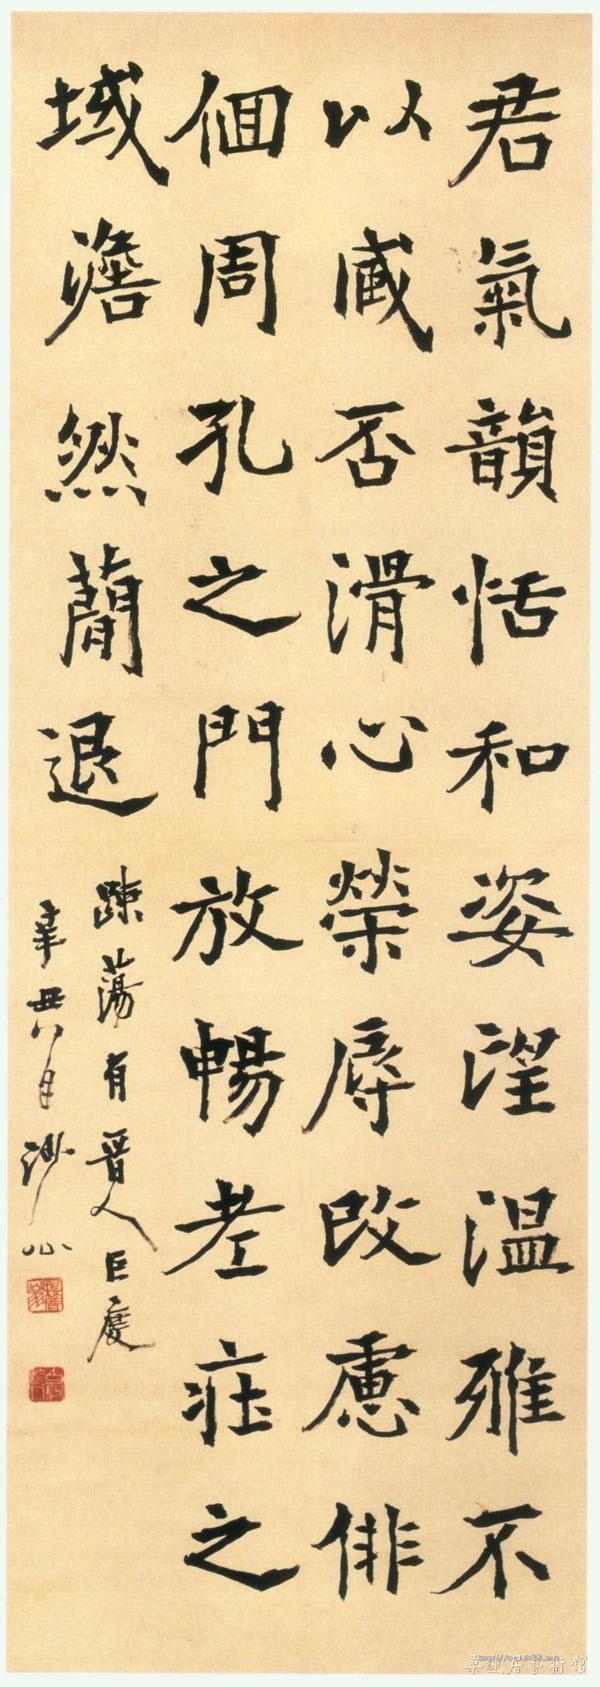 君氣韻恬和姿望温雅不
以臧否滑心榮辱改慮俳
佪周孔之門放暢老庄之
域澹然蕳退
踈蕩有晋人巨度
辛丑月